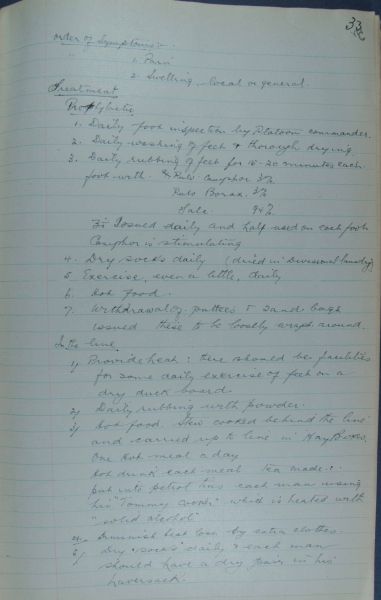 33
Order of Symptoms:-
1. Pain
2. Swelling, local or general.
Treatment
Prophylactic
1. Daily foot inspection by Platoon commander.
2. Daily washing of feet & thorough drying
3. Daily rubbing of feet for 15-20 minutes each
foot with Pulv. Camphor 3%
Pulv Borax. 3%
Talc. 94%
Issued daily and half used on each foot
Camphor is stimulating
4. Dry socks daily (dried in Divisional laundry)
5 Exercise, even a little, daily
6. Hot food.
7. Withdrawal of puttees & sand bags
issued these to be loosely wrapt around.
In the line.
1/ Provide heat: there should be facilities
for some daily exercise of feet on a
dry duck board.
2/ Daily rubbing with powder.
3/ Hot food. Stew cooked behind the line
and carried up to line in Hay Boxes.
One hot meal a day
Hot drink each meal tea made &
put into petrol tins each man using
his "Tommy cooker" which is heated with
"solid alcohol"
4/ Diminish heat loss by extra clothes.
5/ Dry socks daily & each man
should have a dry pair in his
haversack.